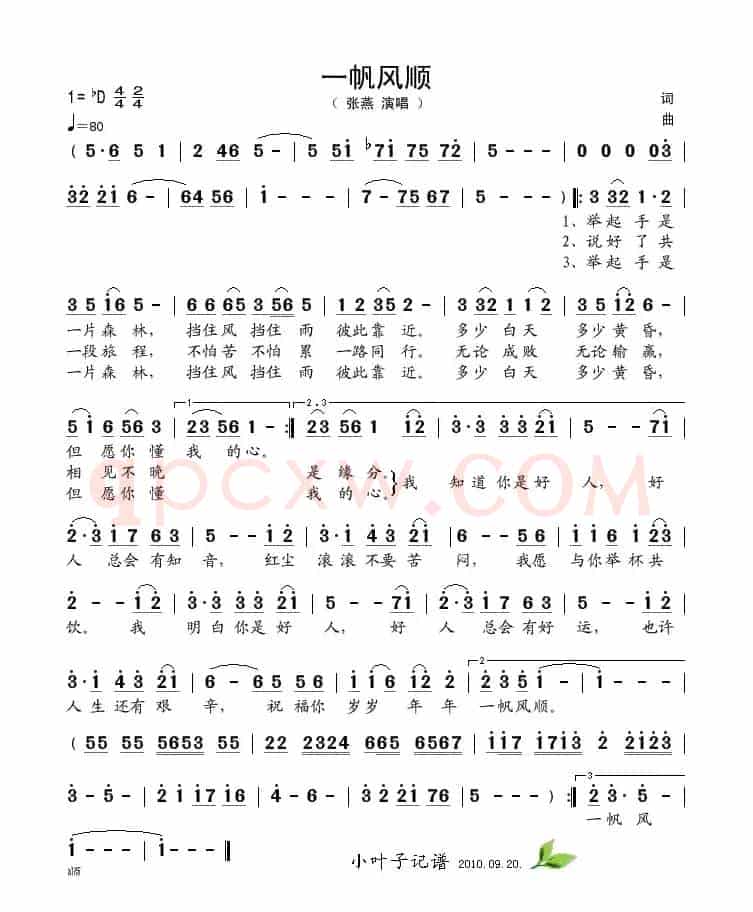 一帆风顺
1=♭D 4/4 2/4
（ 张燕 演唱 ）
词
♩=80
曲
( 5·6 5 1 | 2 46 5 - | 5 51 ♭71 75 72 | 5 - - - | 0 0 0 03 |
32 21 6 - | 64 56 | 1 - - - | 7 - 75 67 | 5 - - - ) ‖: 3 32 1·2 |
1、举起 手是
2、说好 了共
3、举起 手是
3 5 16 5 - | 6 6 65 3 56 5 | 3 2 35 2 - | 3 32 1 1 2 | 3 5 12 6 - |
一片森 林， 挡住风 挡住 雨 彼此靠 近。 多少 白天 多少黄 昏，
一段旅 程， 不怕苦 不怕 累 一路同 行。 无论 成败 无论输 赢，
一片森 林， 挡住风 挡住 雨 彼此靠 近。 多少 白天 多少黄 昏，
1
2.3
5 1 6 56 3 | 23 56 1 - :‖ 23 56 1 12 | 3·3 33 21 | 5 - - 71 |
但 愿你 懂 我 的心。
相 见不 晚 是 缘分。 我 知道你是好 人， 好
但 愿你 懂 我 的心。
2·3 17 63 | 5 - - 12 | 3·1 43 21 | 6 - - 56 | 1·6 16 123 |
人 总会有知 音， 红尘 滚滚不要苦 闷， 我愿 与你举杯共
2 - - 12 | 3·3 33 21 | 5 - - 71 | 2·3 17 63 | 5 - - 12 |
饮。 我 明白你是好 人， 好 人 总会有好 运， 也许
2
3·1 43 21 | 6 - 65 56 | 1 16 12 2 | 235 1 - | 1 - - - |
人生还有艰 辛， 祝福你 岁岁 年年 一帆风顺。
( 55 55 5653 55 | 22 2324 665 6567 | 117 1713 2 2123 |
3
3 - 5 - | 2 1 7 16 | 4 - 6 - | 3 321 2176 | 5 - - - ) :‖ 2 3·5 |
一帆 风
1 - - - | 1 - - - ‖
顺
小叶子记谱 2010.09.20.
qpcxw.COM